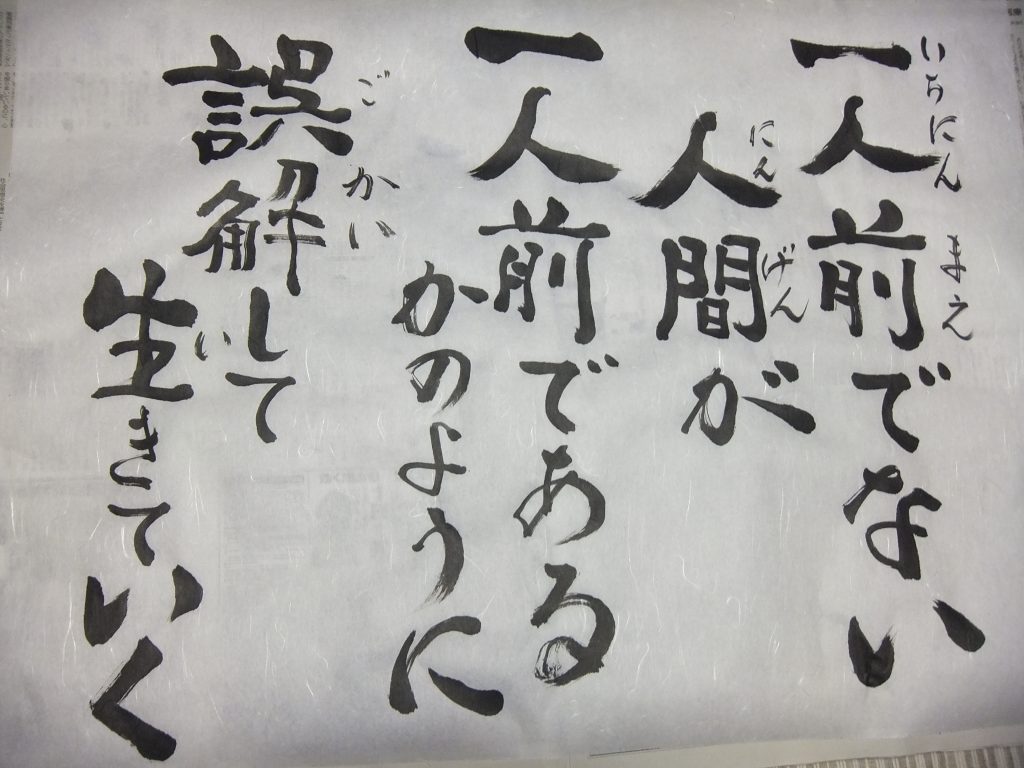 一人前でない
いちにんまえ
人間が
にんげん
一人前である
かのように
誤解して
ごかい
生きていく
い